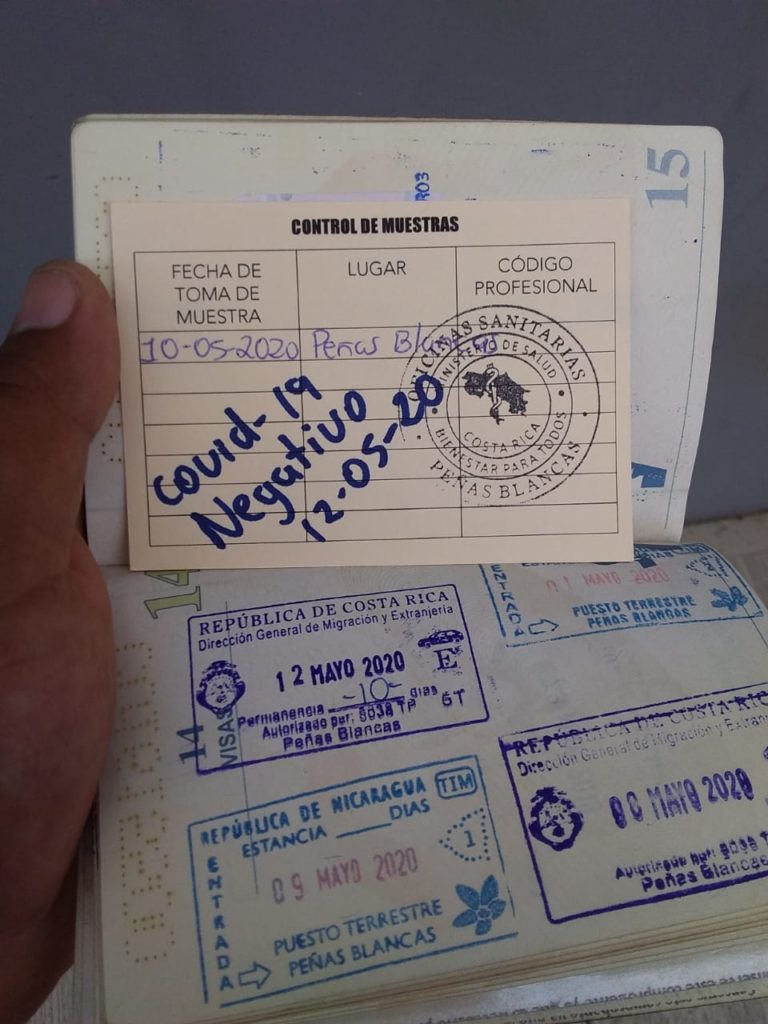 15
CONTROL DE MUESTRAS
FECHA DE TOMA DE MUESTRA
LUGAR
CÓDIGO PROFESIONAL
10-05-2020 Peñas Blancas
Covid-19
Negativo
12-05-20
OFICINAS SANITARIAS
MINISTERIO DE SALUD
COSTA RICA
BIENESTAR PARA TODOS
PEÑAS BLANCAS
14
ENTRADA
01 MAYO 2020
PUESTO TERRESTRE
PEÑAS BLANCAS
REPÚBLICA DE COSTA RICA
Dirección General de Migración y Extranjería
12 MAYO 2020
E
Permanencia -10- días
6T
Autorizado por: 6038 TP
Peñas Blancas
14
VISAS
REPÚBLICA DE COSTA RIC
Dirección General de Migración y Extran
MAYO 2020
Autorizado por:
Peñas Blancas
REPÚBLICA DE NICARAGUA TIM
ESTANCIA ____ DIAS
1
ENTRADA
09 MAYO 2020
PUESTO TERRESTRE
PEÑAS BLANCAS